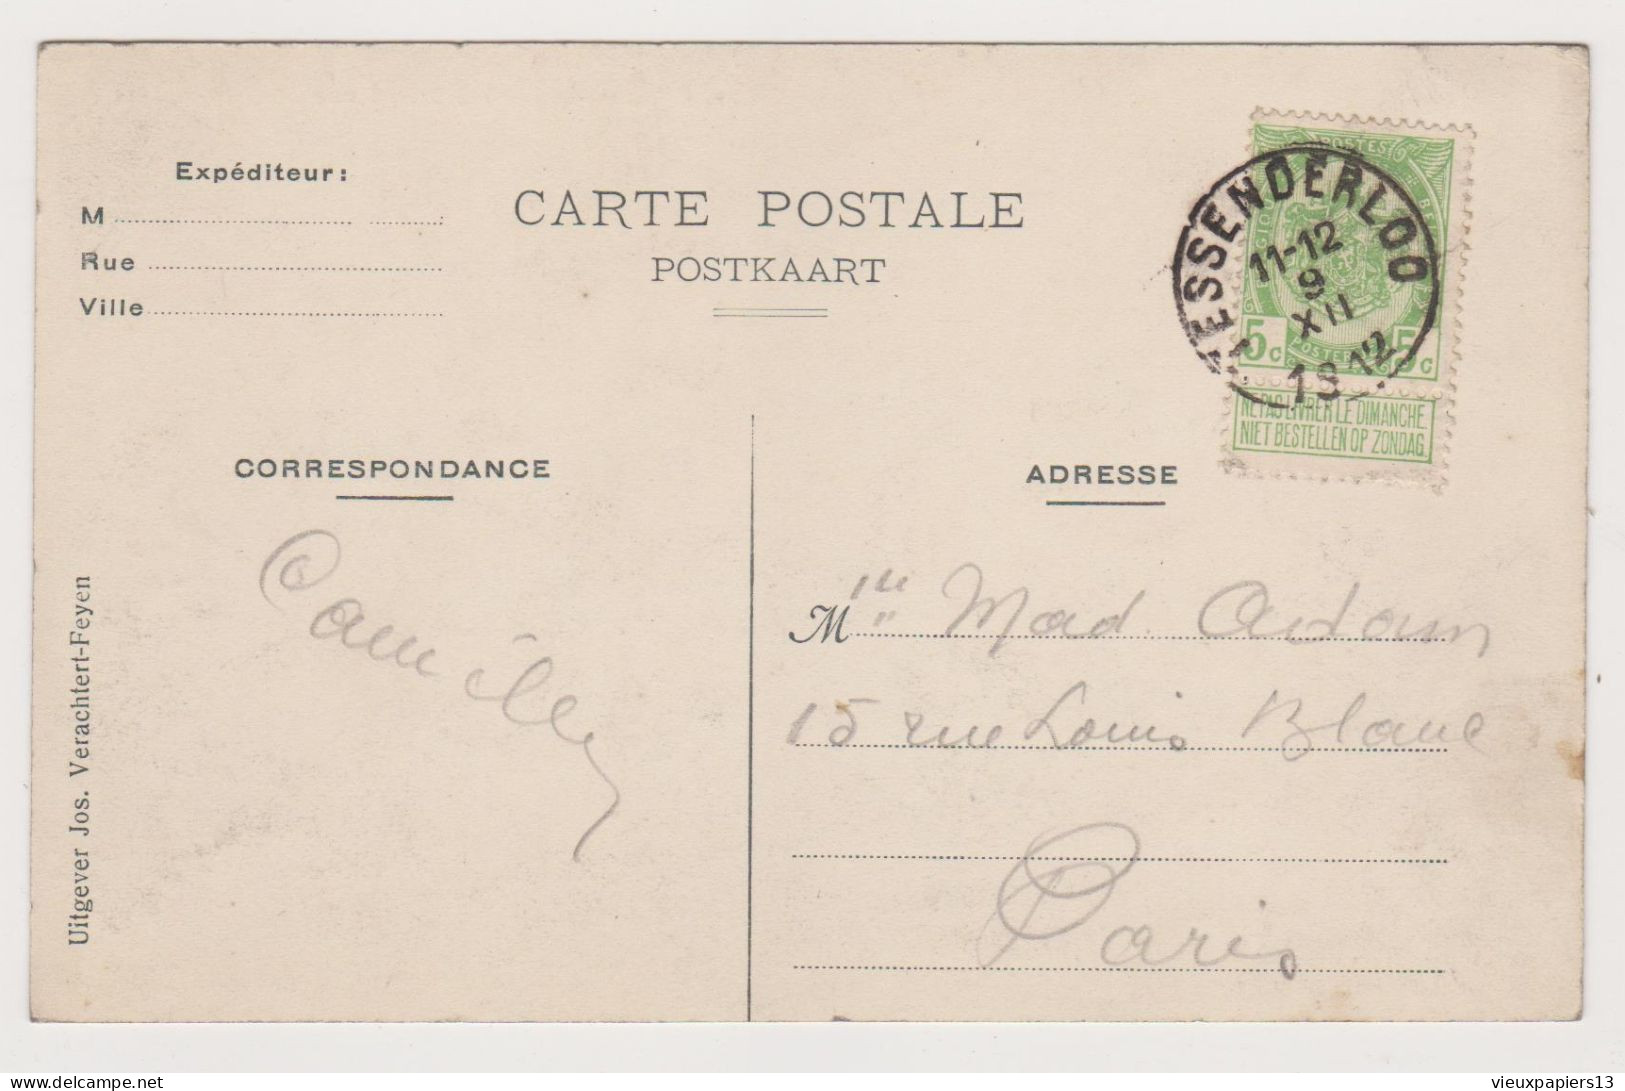 Expéditeur:
M
Rue
Ville
CARTE POSTALE
POSTKAART
POSTES
5c 5c
POSTERIJ
NE PAS LIVRER LE DIMANCHE
NIET BESTELLEN OP ZONDAG.
ESSENDERLOO
11-12
9
XII
1912
CORRESPONDANCE
Camille
ADRESSE
Mlle Mad. Adam
15 rue Louis Blanc
Paris
Uitgever Jos. Verachtert-Feyen
vieuxpapiers13